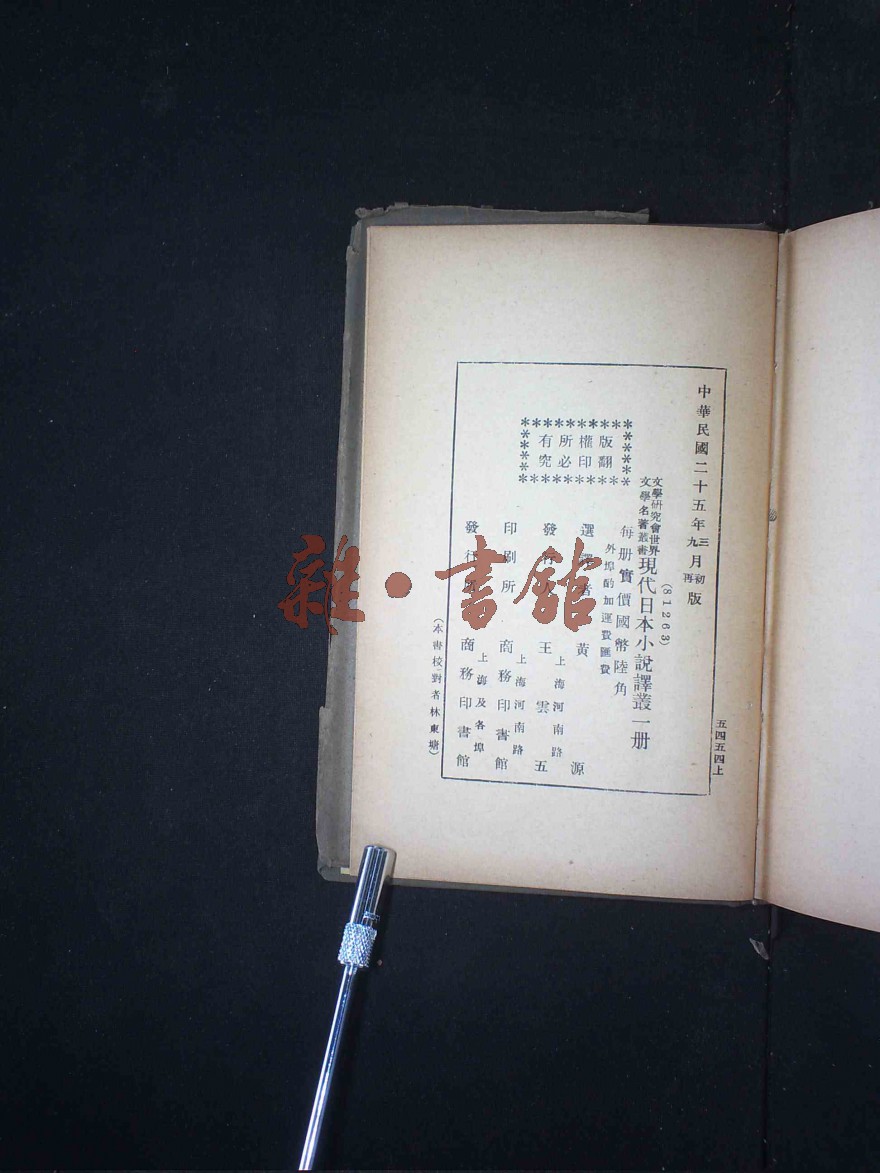 中華民國二十五年三月初版
九再
(81263)
文學研究會世界
文學名著叢書
現代日本小說譯叢一册
每册實價國幣陸角
外埠酌加運費匯費
版權所有
翻印必究
選譯者 黃源
上海河南路
發行人 王雲五
上海河南路
印刷所 商務印書館
上海及各埠
發行所 商務印書館
(本書校對者林東塘)
五四五四上
雜·書館